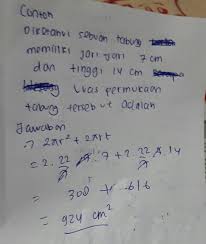 Contoh
Diketahui sebuah tabung
memiliki jari-jari 7 cm
dan tinggi 14 cm
Luas permukaan
tabung tersebut adalah
Jawaban
2πr² + 2πrt
= 2. 22/7 . 7 + 2. 22/7 . 14
= 308 + 616
= 924 cm²